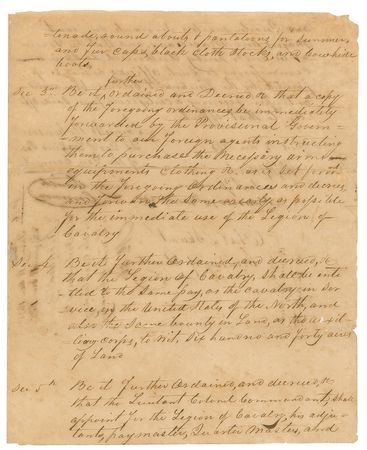 tinade, round abouts & pantaloons for summer
and Fur Caps, black Cloth Stocks, and Cowhide
boots.
further
Sec 3rd Be it, Ordained and Decreed, &c that a copy
of the foregoing ordinances be immediately
forwarded by the Provisional Govern-
ment to our foreign agents instructing
them to purchase the necessary arms
equipments Clothing &c. as is set forth
in the foregoing Ordinances and decree
and forward the same as early as possible
for the immediate use of the Legion of
Cavalry
Sec. 4th Be it Further Ordained, and decreed, &c
that the Legion of Cavalry, shall be enti-
tled to the same pay, as the Cavalry in Ser
vice, in the United States of the North, and
also the same bounty in Land, as the auxil-
iary Corps, to wit, Six hundred and forty acres
of Land
Sec 5th Be it Further Ordained, and decreed, &c
that the Lieutant Colonel Commandant, shall
appoint for the Legion of Cavalry, his adju-
tant, paymaster, Quarter Master, and